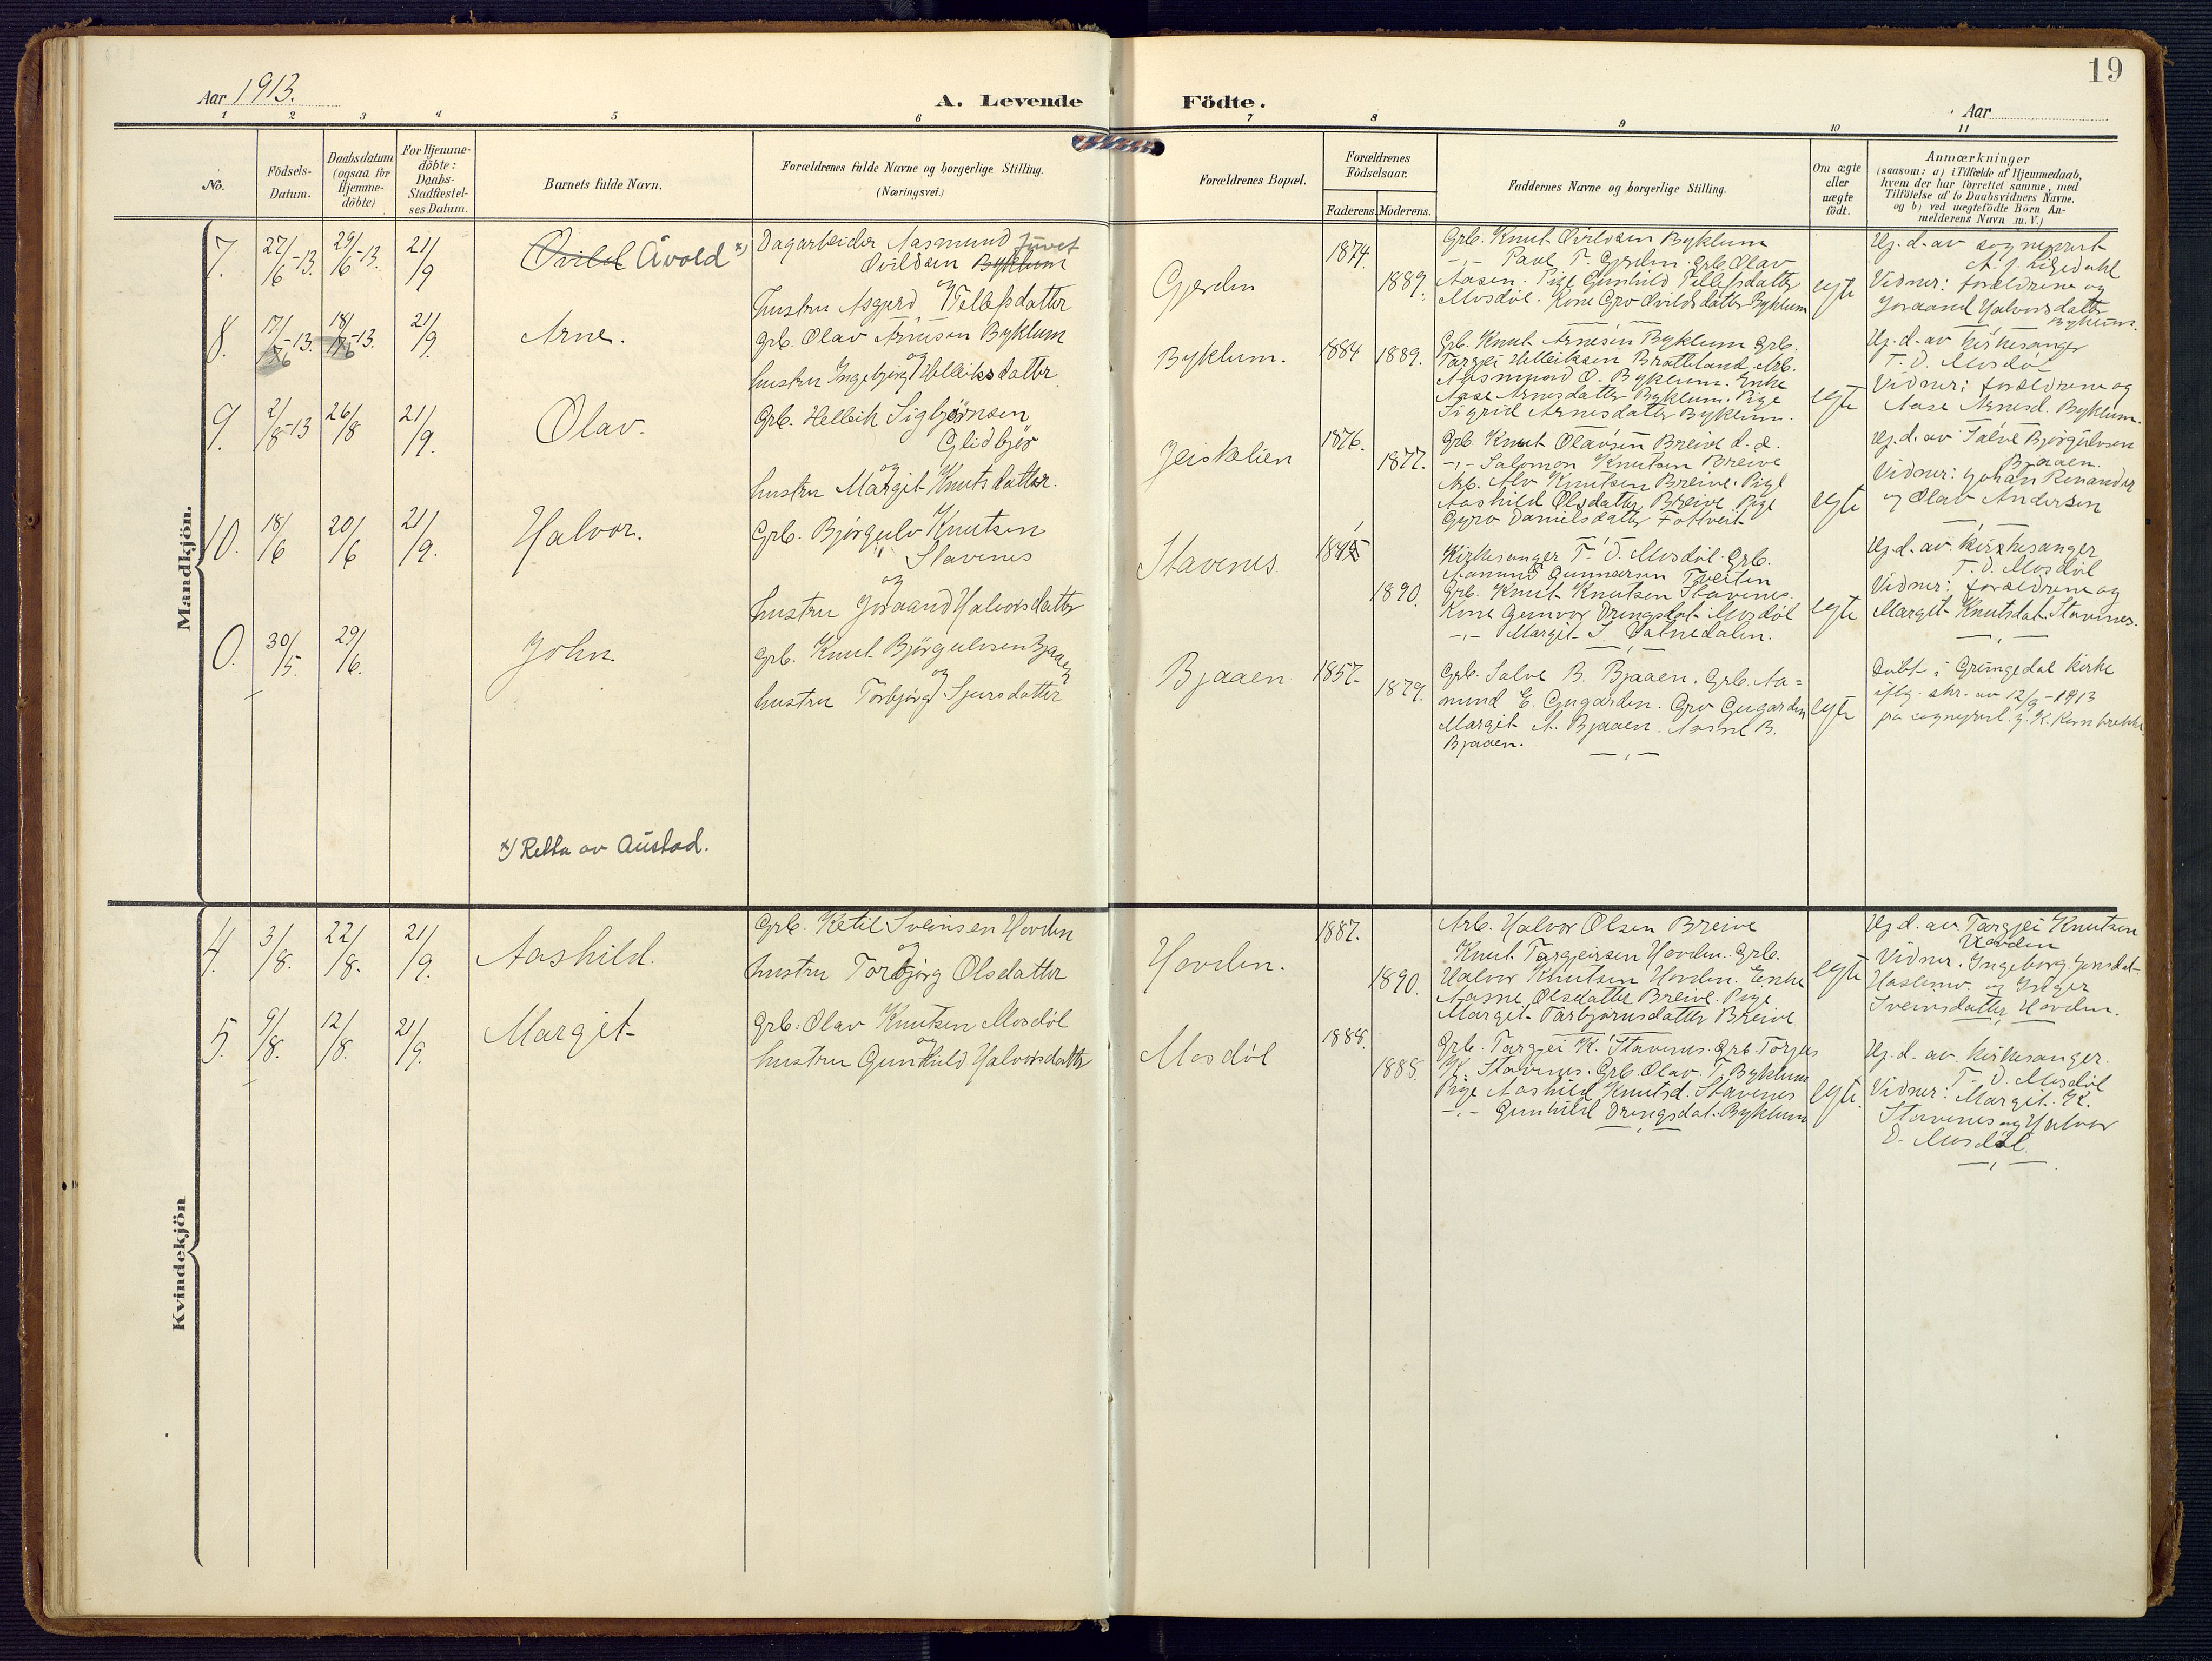 19
Aar 1913.
A. Levende Födte.
Aar
1 2 3 4 5 6 7 8 9 10 11
No.
Födsels-
Datum.
Daabsdatum
(ogsaa for
Hjemme-
döbte)
For Hjemme-
döbte:
Daabs-
Stadfæstel-
ses Datum.
Barnets fulde Navn.
Forældrenes fulde Navne og borgerlige Stilling.
(Næringsvei.)
Forældrenes Bopæl.
Forældrenes
Födselsaar.
Faderens. Moderens.
Faddernes Navne og borgerlige Stilling.
Om ægte
eller
uægte
födt.
Anmærkninger
(saasom: a) i Tilfælde af Hjemmedaab,
hvem der har forrettet samme, med
Tilföielse af to Daabsvidners Navne,
og b) ved uægtefödte Börn An-
melderens Navn m. V.)
Mandkjön.
7. 27/6-13. 29/6-13. 21/9
Øvild Åvold x)
Dagarbeider Aasmund Juvet
Øvildsen Byklum
og
hustru Asgjerd Tellefsdatter
Gjerden
1874. 1889.
Grb. Knut Øvildsen Byklum
-,- Paul T. Gjerden. Grb. Olav
Aasen. Pige Gunhild Tellefsdatter
Mosdøl. Kone Gro Øvildsdatter Byklum
egte
Hj. d. av sogneprest
Vidner: forældrene og
Joraand Halvorsdatter
Byklum.
8. 17/6-13. 18/6-13. 21/9.
Arne.
Grb. Olav Arnesen Byklum
og
hustru Ingebjørg Helleiksdatter
Byklum.
1884 1889.
Grb. Knut Arnesen Byklum Grb.
Targjei Helleiksen Bratteland. Arb.
Aasmund O. Byklum. Enke
Aase Arnesdatter Byklum. Pige
Sigrid Arnesdatter Byklum.
egte
Hj. d. av kirkesanger
T. D. Mosdøl
Vidner: forældrene og
Aase Arnesd. Byklum.
9. 2/8-13 26/8 21/9.
Olav.
Grb. Helleik Sigbjørnsen
Glidbjør
og
hustru Margit Knutsdatter.
Jeiskelien
1876. 1877.
Grb. Knut Olavsen Breive d. e.
-,- Salomon Knutsen Breive
Arb. Alv Knutsen Breive. Pige
Aashild Olsdatter Breive. Pige
Gyro Danielsdatter
egte
Hj. d. av Salve Bjørgulvsen
Bjaaen.
Vidner: Johan Renander
og Olav Andersen
10. 18/6 20/6 21/9.
Halvor.
Grb. Bjørgulv Knutsen
Stavenes
og
hustru Joraand Halvorsdatter
Stavenes.
1890.
Kirkesanger T. D. Mosdøl. Grb.
Aamund Gunnarsen Tveiten
Grb. Knut Knutsen Stavenes.
Kone Gunvor Drengsdat. Mosdøl
-,- Margit S. Vatnedalen.
egte
Hj. d. av. kirkesanger
T. D. Mosdøl
Vidner: forældrene og
Margit Knutsdat. Stavenes.
0. 30/5. 29/6.
John.
Grb. Knut Bjørgulvsen Bjaaen
og
hustru Torbjørg Sjursdatter
Bjaaen.
1857. 1879.
Grb. Salve B. Bjaaen. Grb. Aa=
mund E. Gugarden. Gro Gugarden
Margit A. Bjaaen. Aasne B.
Bjaaen.
egte
Døbt i Grungedal kirke
iflg. skr. av 12/9-1913
fra sogneprest.
x) Retta av Austad.
Kvindekjön
4. 3/8. 22/8. 21/9.
Aashild.
Grb. Ketil Sveinsen Hovden
og
hustru Torbjørg Olsdatter
Hovden.
1887. 1890.
Arb. Halvor Olsen Breive
Knut Targjeirsen Hovden. Grb.
Halvor Knutsen Hovden. Enke
Aasne Olsdatter Breive. Pige
Margit Tarbjørnsdatter Breive
egte
Hj. d. av. Targjei Knutsen
Hovden
Vidner. Ingeborg Jonsdat-
og Inger
Sveinsdatter Hovden.
5. 9/8. 12/8. 21/9.
Margit
Grb. Olav Knutsen Mosdøl
og
hustru Gunhild Halvorsdatter
Mosdøl
1885. 1888.
Grb. Targjei K. Stavenes. Grb. Torjus
K. Stavenes. Grb. Olav. T. Byklum
Pige Aashild Knutsd. Stavenes
-,- Gunhild Drengsdat. Byklum
egte.
Hj. d. av. kirkesanger.
T. D. Mosdøl
Vidner: Margit. K.
Stavenes og Halvor
D. Mosdøl.